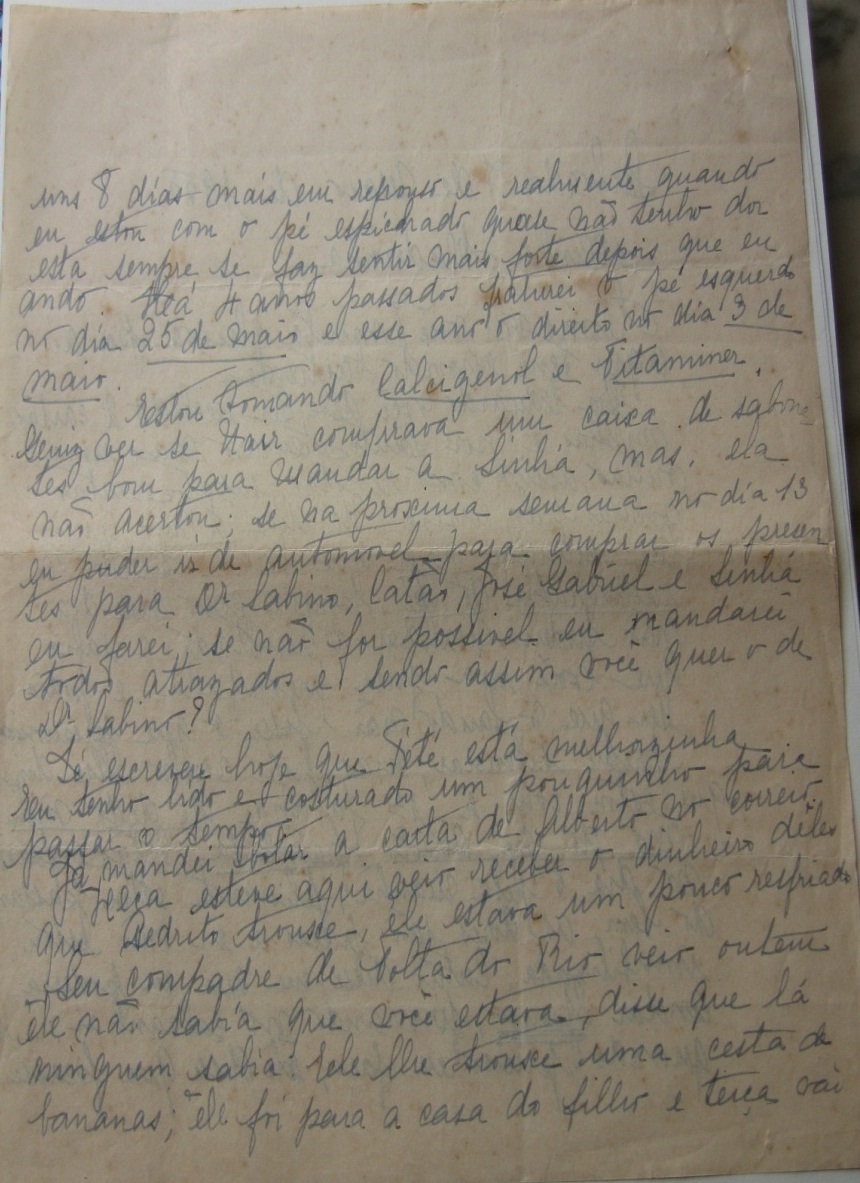 uns 8 dias mais em repouso e realmente quando
eu estou com o pé espichado quase não tenho dor
esta sempre se faz sentir mais forte depois que eu
ando. Há 4 anos passados fraturei o pé esquerdo
no dia 25 de maio e esse ano o direito no dia 3 de
maio.
Estou tomando Calcigenol e Vitaminer.
ver se Nair comprava um caixa de sabone
tes bom para mandar a Sinhá, mas, ela
não acertou; se na proxima semana no dia 13
eu puder ir de automovel para comprar os presen
tes para Dr Sabino, Catão, José Gabriel e Sinhá
eu farei; se não for possivel eu mandarei
todos atrazados e sendo assim você quer o de
Dr Sabino?
Zé escreveu hoje que Teté está melhorzinha
Eu tenho lido e costurado um pouquinho para
passar o tempo.
Já mandei botar a carta de Alberto no correio
esteve aqui veio receber o dinheiro dêles
que Pedrito trousse, êle estava um pouco resfriado
Seu compadre de Volta do Rio veio outem
êle não sabia que você estava, disse que lá
ninguem sabia. Ele lhe trousse uma cesta de
bananas; êle foi para a casa do filho e terça vai